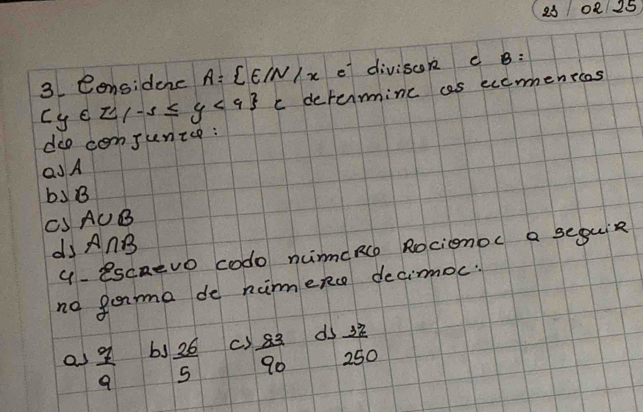 23/02/25
3- Considere A = {E/N/x é divisor e B =
{y ∈ Z/-5 ≤ y < 9} e determine os elementos
do conjunto:
a) A
b) B
c) A∪B
d) A∩B
4- Escrevo codo número Rocionoc a seguir
na forma de número decimoc:
a) 7/9 b) 26/5 c) 83/90 d) 37/250